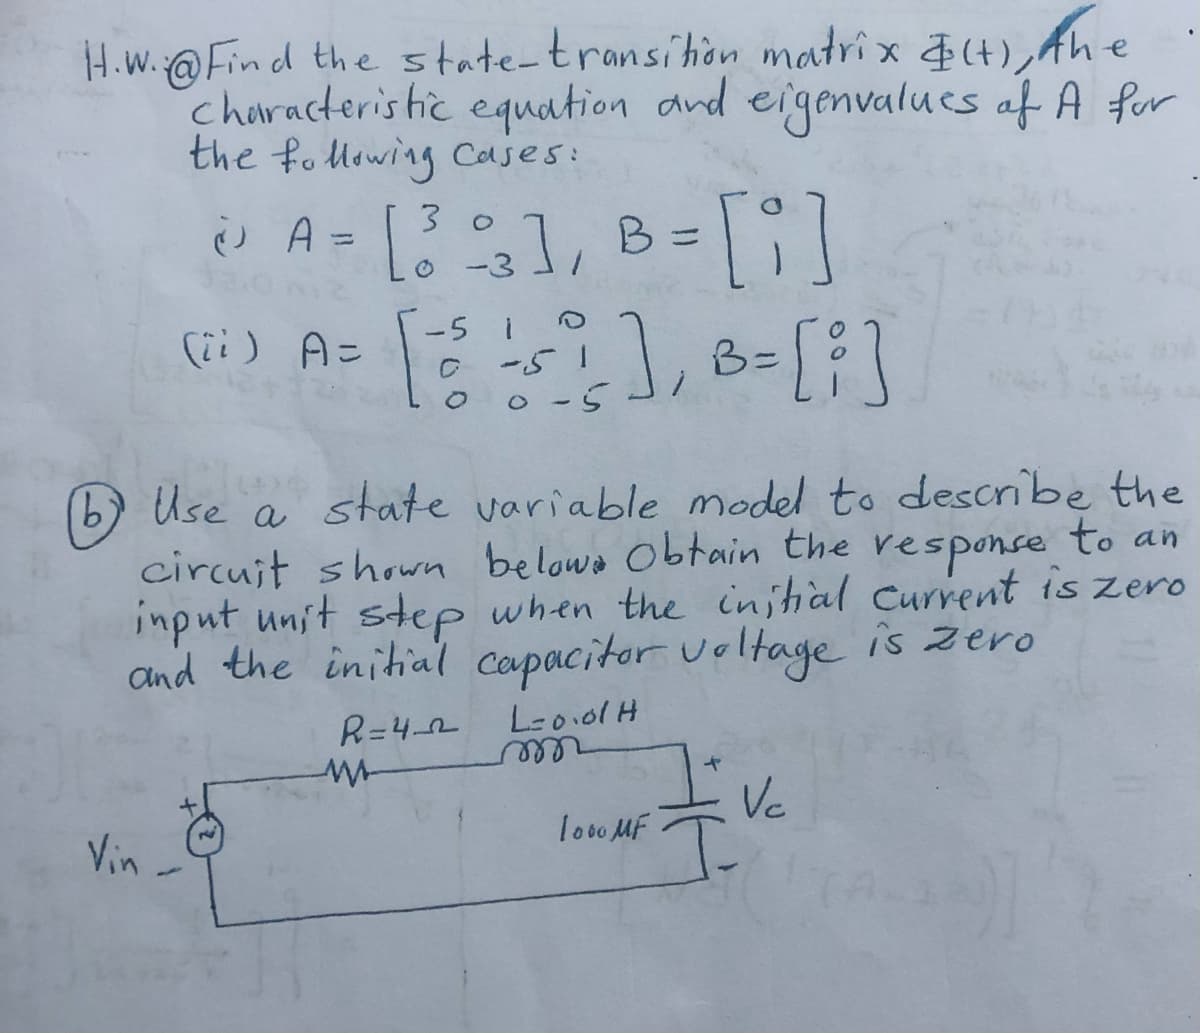 H.W.:@Find the state-transition matrix Φ(t), the
characteristic equation and eigenvalues of A for
the following Cases:
(i) A = [3 0
0 -3], B = [0
1]
(ii) A= [-5 1 0
0 -5 1
0 0 -5], B= [0
0
1]
(b) Use a state variable model to describe the
circuit shown below. Obtain the response to an
input unit step when the initial current is zero
and the initial capacitor voltage is zero
R=4Ω L=0.01H
+ Vc
+
1000 MF
Vin -
-